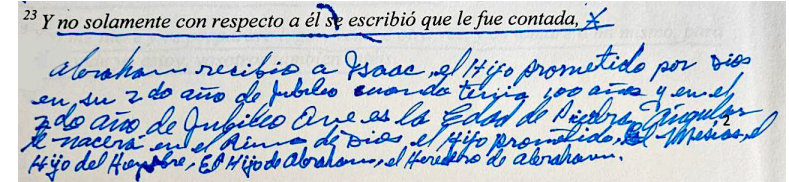 23 Y no solamente con respecto a él se escribió que le fue contada,
abraham recibio a Isaac, el Hijo prometido por Dios
en su 2do año de Jubileo cuando tenia 100 años y en el
2do año de Jubileo Que es la Edad de Piedra Angular
le nacera en el Reino de Dios el Hijo prometido, El Mesias, el
Hijo del Hombre, El Hijo de Abraham, el Heredero de abraham.